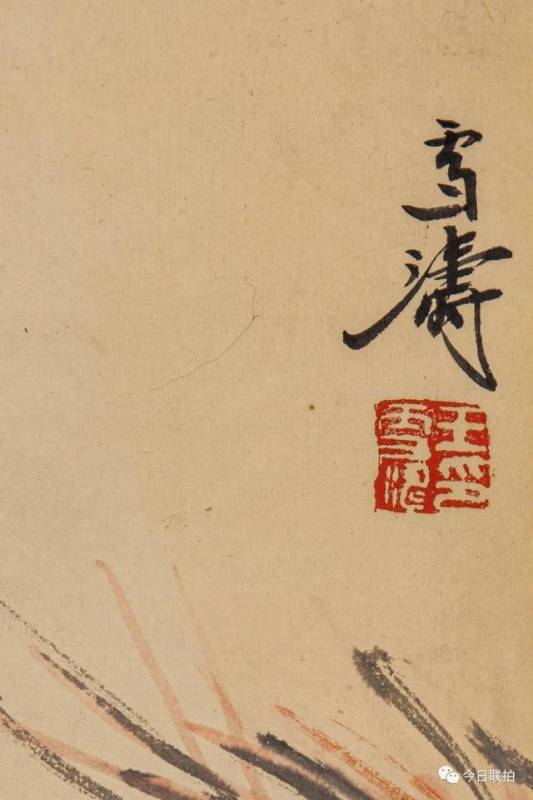 雪濤
王印
雪濤
今日联拍